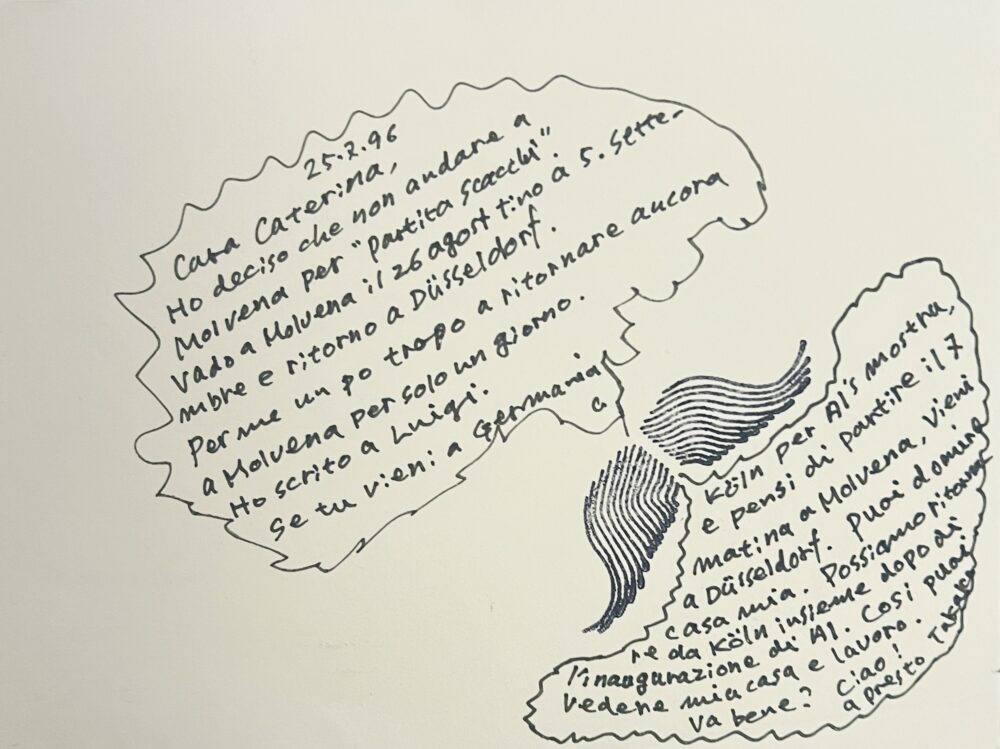 25.7.96
Cara Caterina,
Ho deciso che non andare a
Molvena per "partita scacchi".
vado a Molvena il 26 agosttino a 5. sette-
mbre e ritorno a Düsseldorf.
Per me un po tropo a ritornare ancora
a Molvena per solo un giorno.
Ho scrito a Luigi.
se tu vieni a Germania,
Köln per Al's mostra,
e pensi di partire il 7
matina a Molvena, vieni
a Düsseldorf. Puoi domire
casa mia. Possiamo ritorna
re da Köln insieme dopo di
l'inaugurazione di Al. Cosi puoi
vedere mia casa e lavoro.
Va bene? Ciao!
a presto Takako